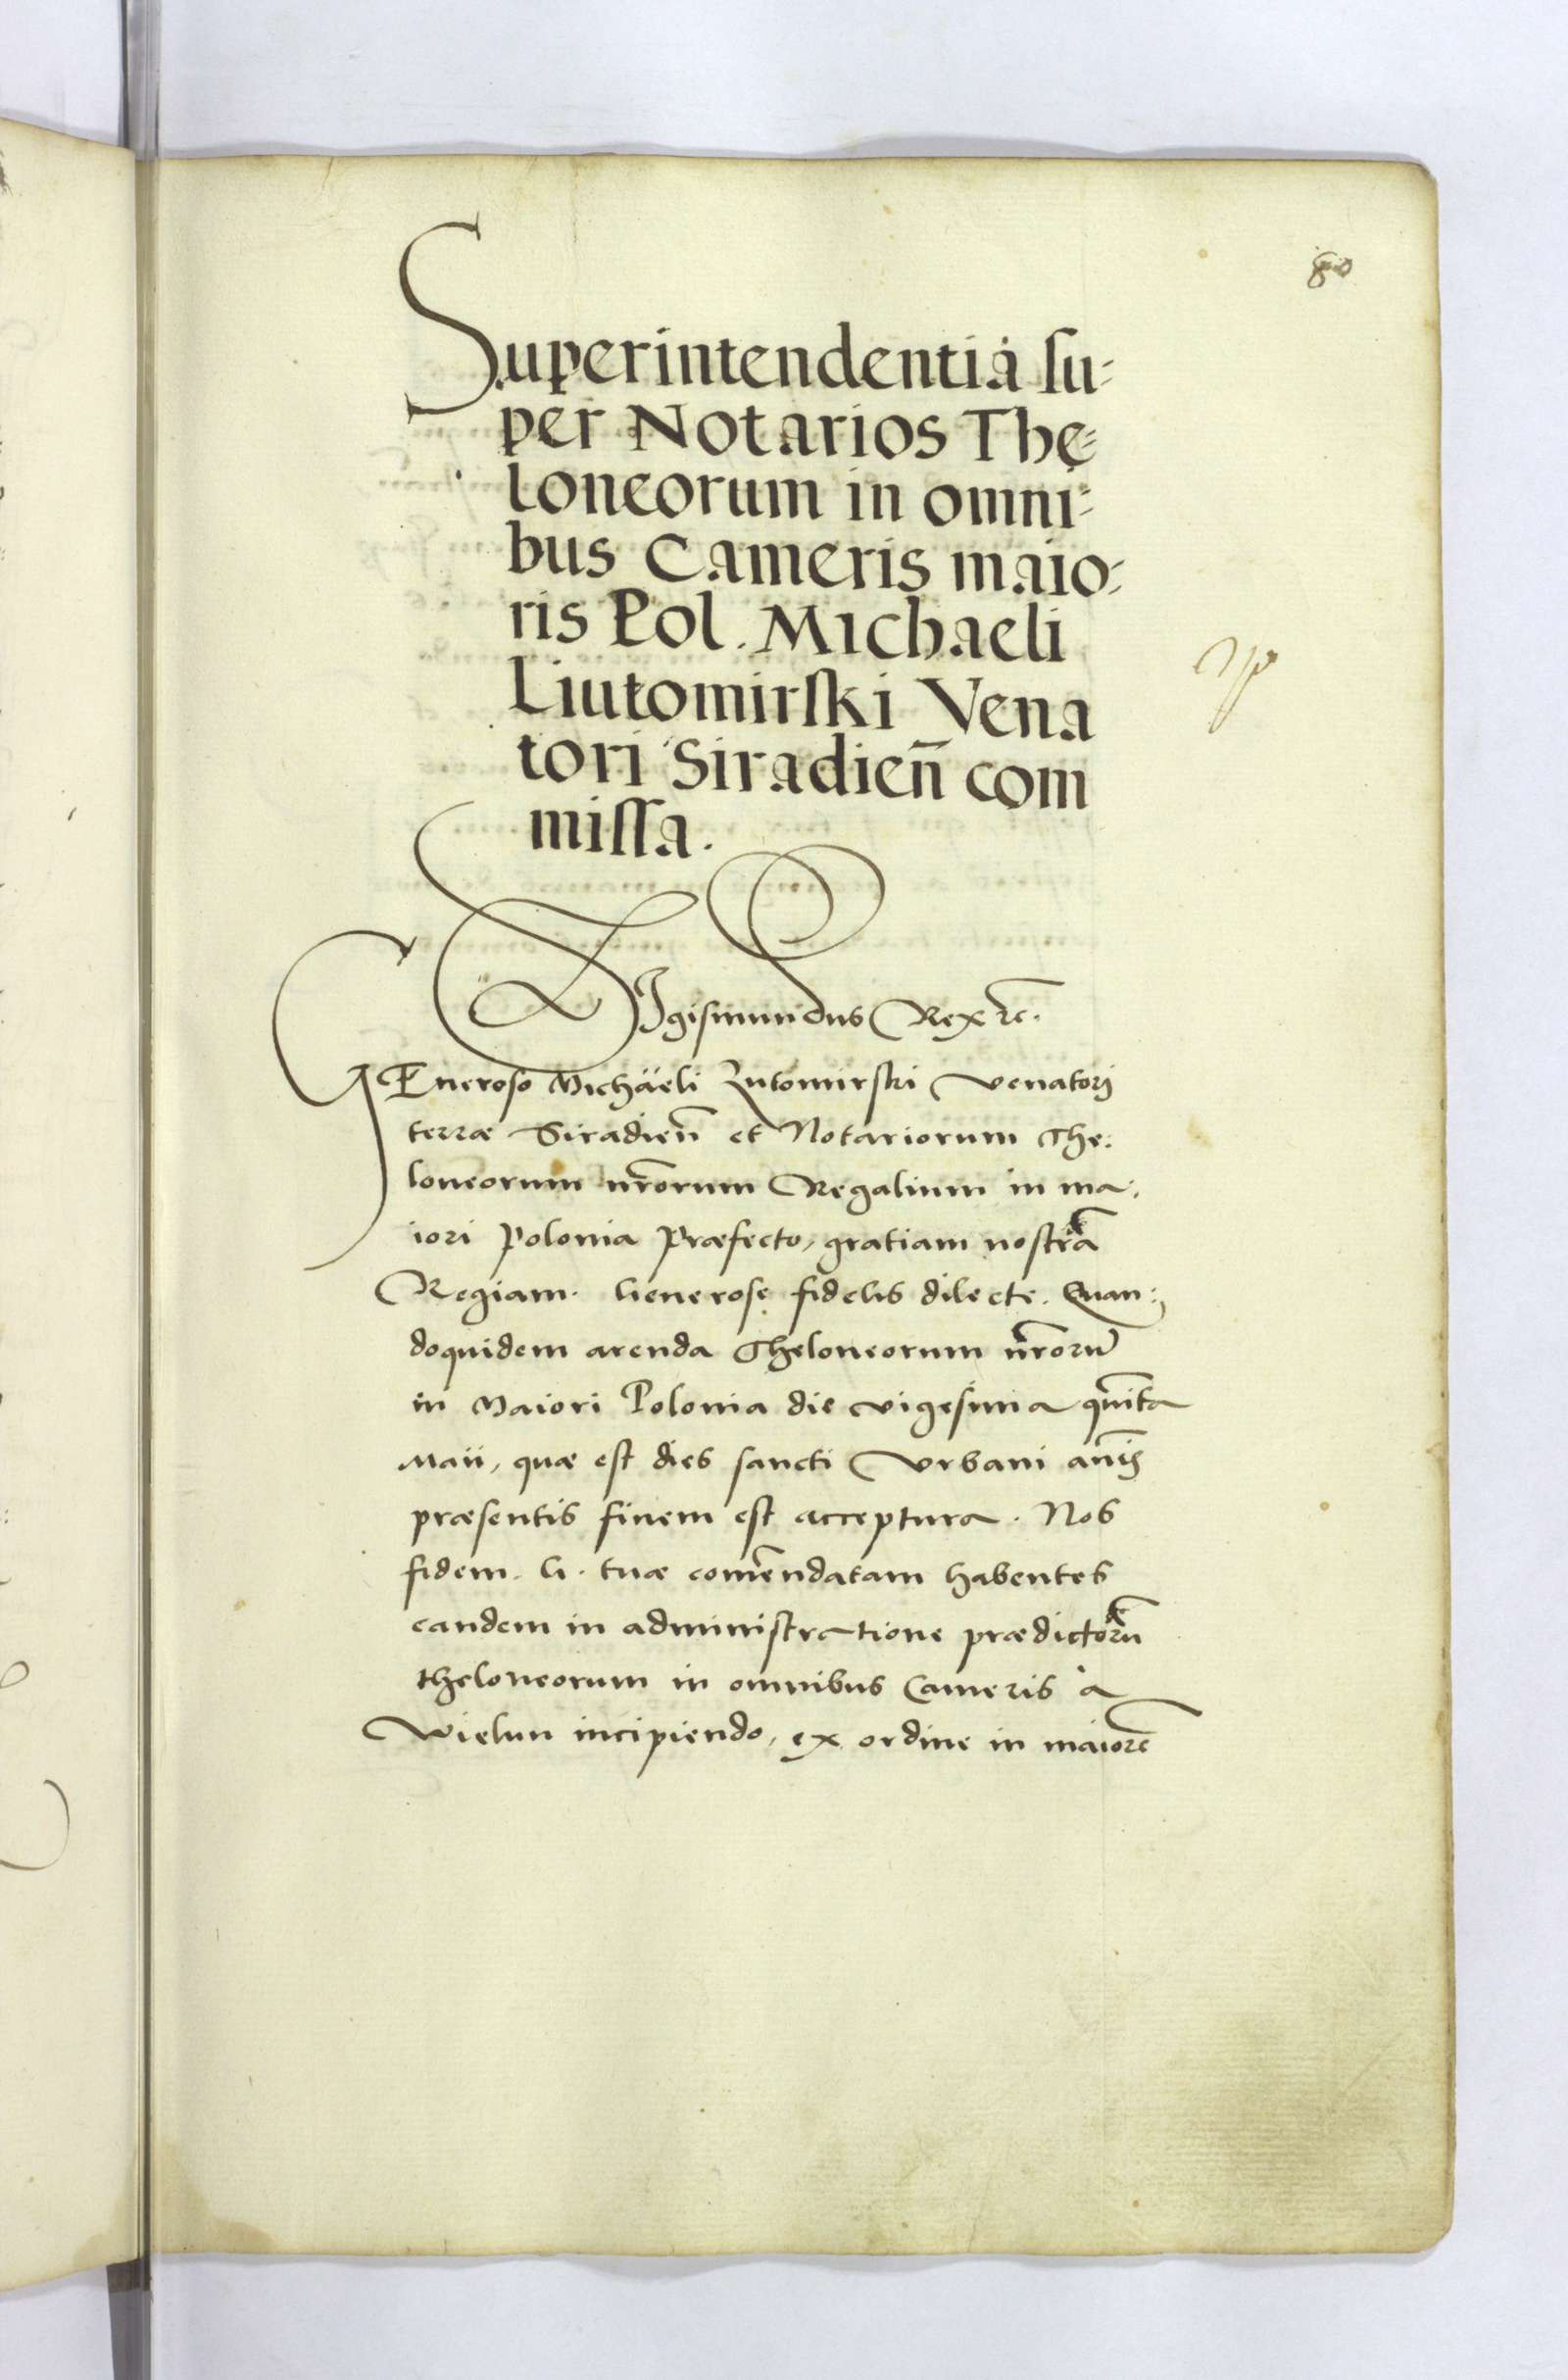 80
Superintendentia su=
per Notarios The=
loneorum in omni=
bus Cameris maio=
ris Pol. Michaeli
Liutomirski Vena
tori Siradien̄ com
missa.
SIgismundus Rex etc.
GEneroso Michäeli Lutomirski venatori
terræ Siradien̄ et Notariorum The:
loneorum nr̄orum Regalium in ma:
iori Polonia Præfecto, gratiam nostrā
Regiam. Generose fidelis dilecte. Quan:
doquidem arenda Theloneorum nr̄orū
in Maiori Polonia die vigesima quīta
Maii, quæ est dies sancti Urbani
præsentis finem est acceptura. Nos
fidem. G. tuæ com̄endatam habentes
eandem in administratione prædictorū
theloneorum in omnibus Cameris a
Wielun incipiendo, ex ordine in maiorē